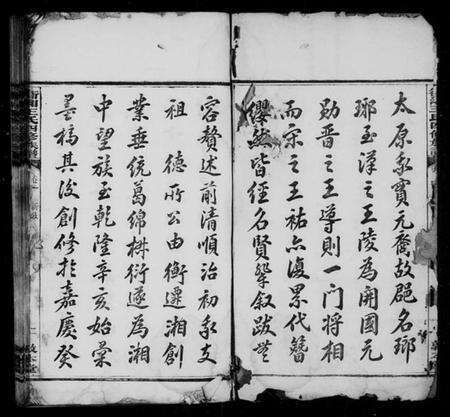 太原家實元裔故郡名瑯
瑯玉漢之王陵為開國元
勛晉之王導則一門將相
而宋之王祐亦復累代簪
纓然皆經名賢筆叙跋無
容贅述前清順治初我支
祖德所公由衡遷湘創
業垂統葛綿椒衍遂為湘
中望族至乾隆辛亥始彙
其後創修於嘉慶癸